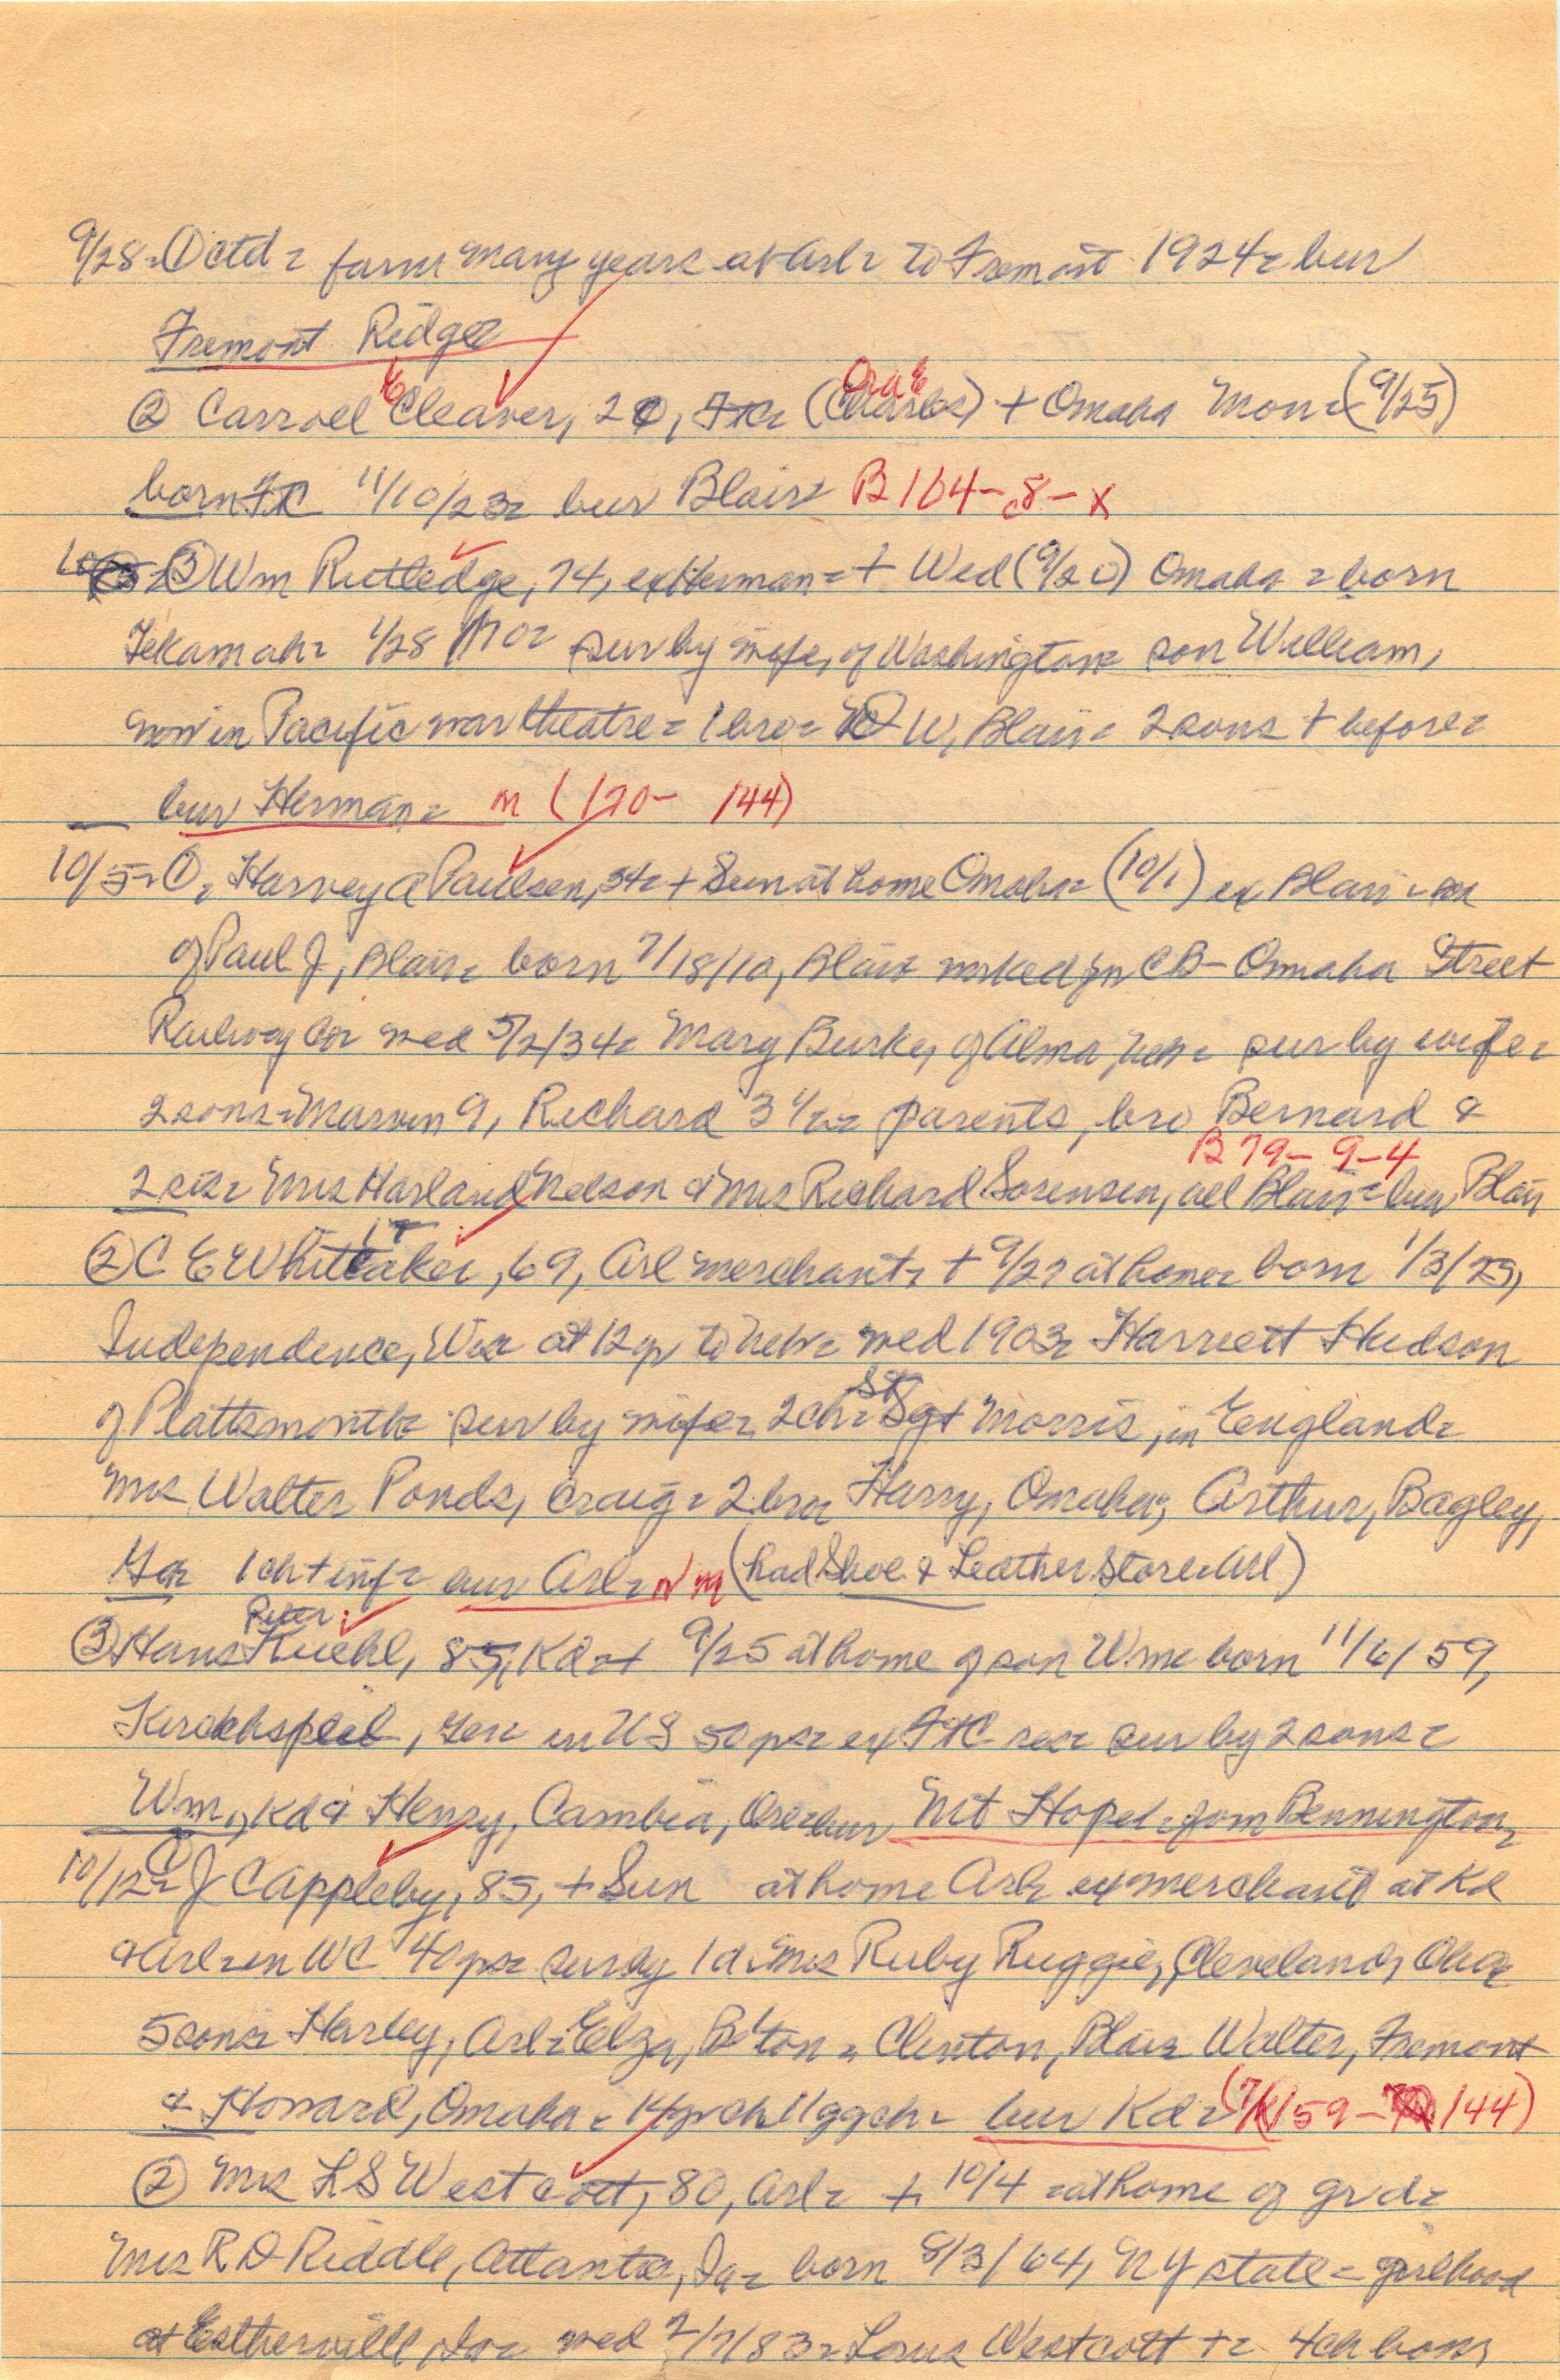 9/28=① ctd= farm many years at Arl= to Fremont 1924= bur
Fremont Ridge=
② Carroll E Cleaver, 20, FtC= (Charles) Ora E + Omaha Mon= (9/25)
born FtC 11/10/23= bur Blair= B 164-8-x
③ Wm Rutledge, 74, ex Herman= + Wed (9/20) Omaha = born
Tekamah= 1/28/70= sur by wife, of Washington= son William,
now in Pacific war theatre= 1 bro= W, Blair= 2 sons + before=
bur Herman= m (170- 144)
10/5=①= Harvey A Paulsen, 34= + Sun at home Omaha= (10/1) ex Blair = son
of Paul J, Blair= born 7/18/10, Blair= worked for CB- Omaha Street
Railway Co= wed 5/2/34= Mary Burke, of Alma, Neb= sur by wife=
2 sons= Marvin 9, Richard 3 1/2= parents, bro Bernard &
B 79- 9-4
2 sis= Mrs Harland Nelson & Mrs Richard Sorensen, all Blair= bur Blair
② C E Whittaker, 69, Arl merchant= + 9/27 at home= born 1/3/75,
Independence, Wis= at 12 yr to Neb= wed 1903= Harriett Hudson
of Plattsmouth= sur by wife= 2 ch= St Sgt Morris, in England=
Mrs Walter Ponds, Craig= 2 bro= Harry, Omaha; Arthur, Bagley,
1 ch + inf= bur Arl= m (had Shoe & Leather Store= Arl)
③ Hans Peter Kuehl, 85, Kd= + 9/25 at home of son Wm= born 11/6/59,
Kirchspiel, Ger= in US 50 yrs= ex FtC res= sur by 2 sons=
Wm, Kd & Henry, Cambia, Ore= bur Mt Hope= from Bennington=
10/12=① J C Appleby, 85, + Sun at home Arl= ex merchant at Kd
& Arl= in WC 40 yrs= sur by 1 d= Mrs Ruby Ruggie, Cleveland, Oh=
5 sons= Harley, Arl= Elza, Bd'ton = Clinton, Blair= Walter, Fremont
& Howard, Omaha = 14 grch 11 ggch= bur Kd= (7/ /59- 144)
② Mrs L S Westcott, 80, Arl= + 10/4 = at home of gr d=
Mrs R D Riddle, Atlantic, Ia= born 8/3/64, NY state = girlhood
at Estherville, Ia= wed 2/7/83= Louis Westcott += 4 ch born